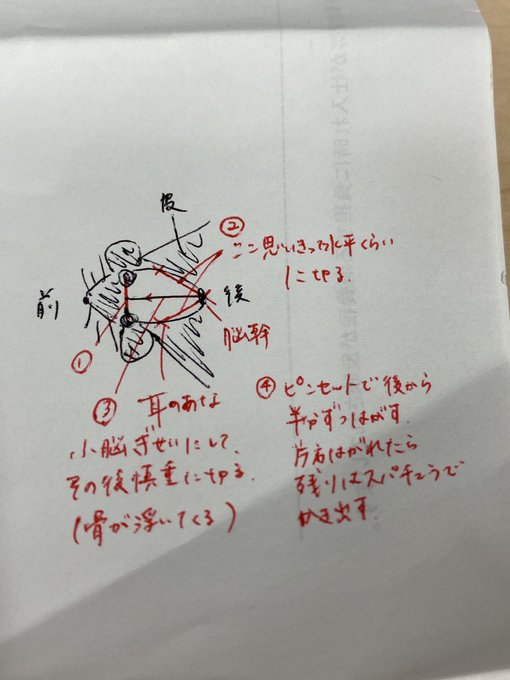 皮
②
ここ思いきって水平くらい
に切る.
前
後
脳幹
①
③ 耳のあな
小脳ぎせいにして、
その後慎重に切る.
(骨が浮いてくる)
④ ピンセットで後から
半分ずつはがす.
片方はがれたら
残りはスパチュラで
かき出す.